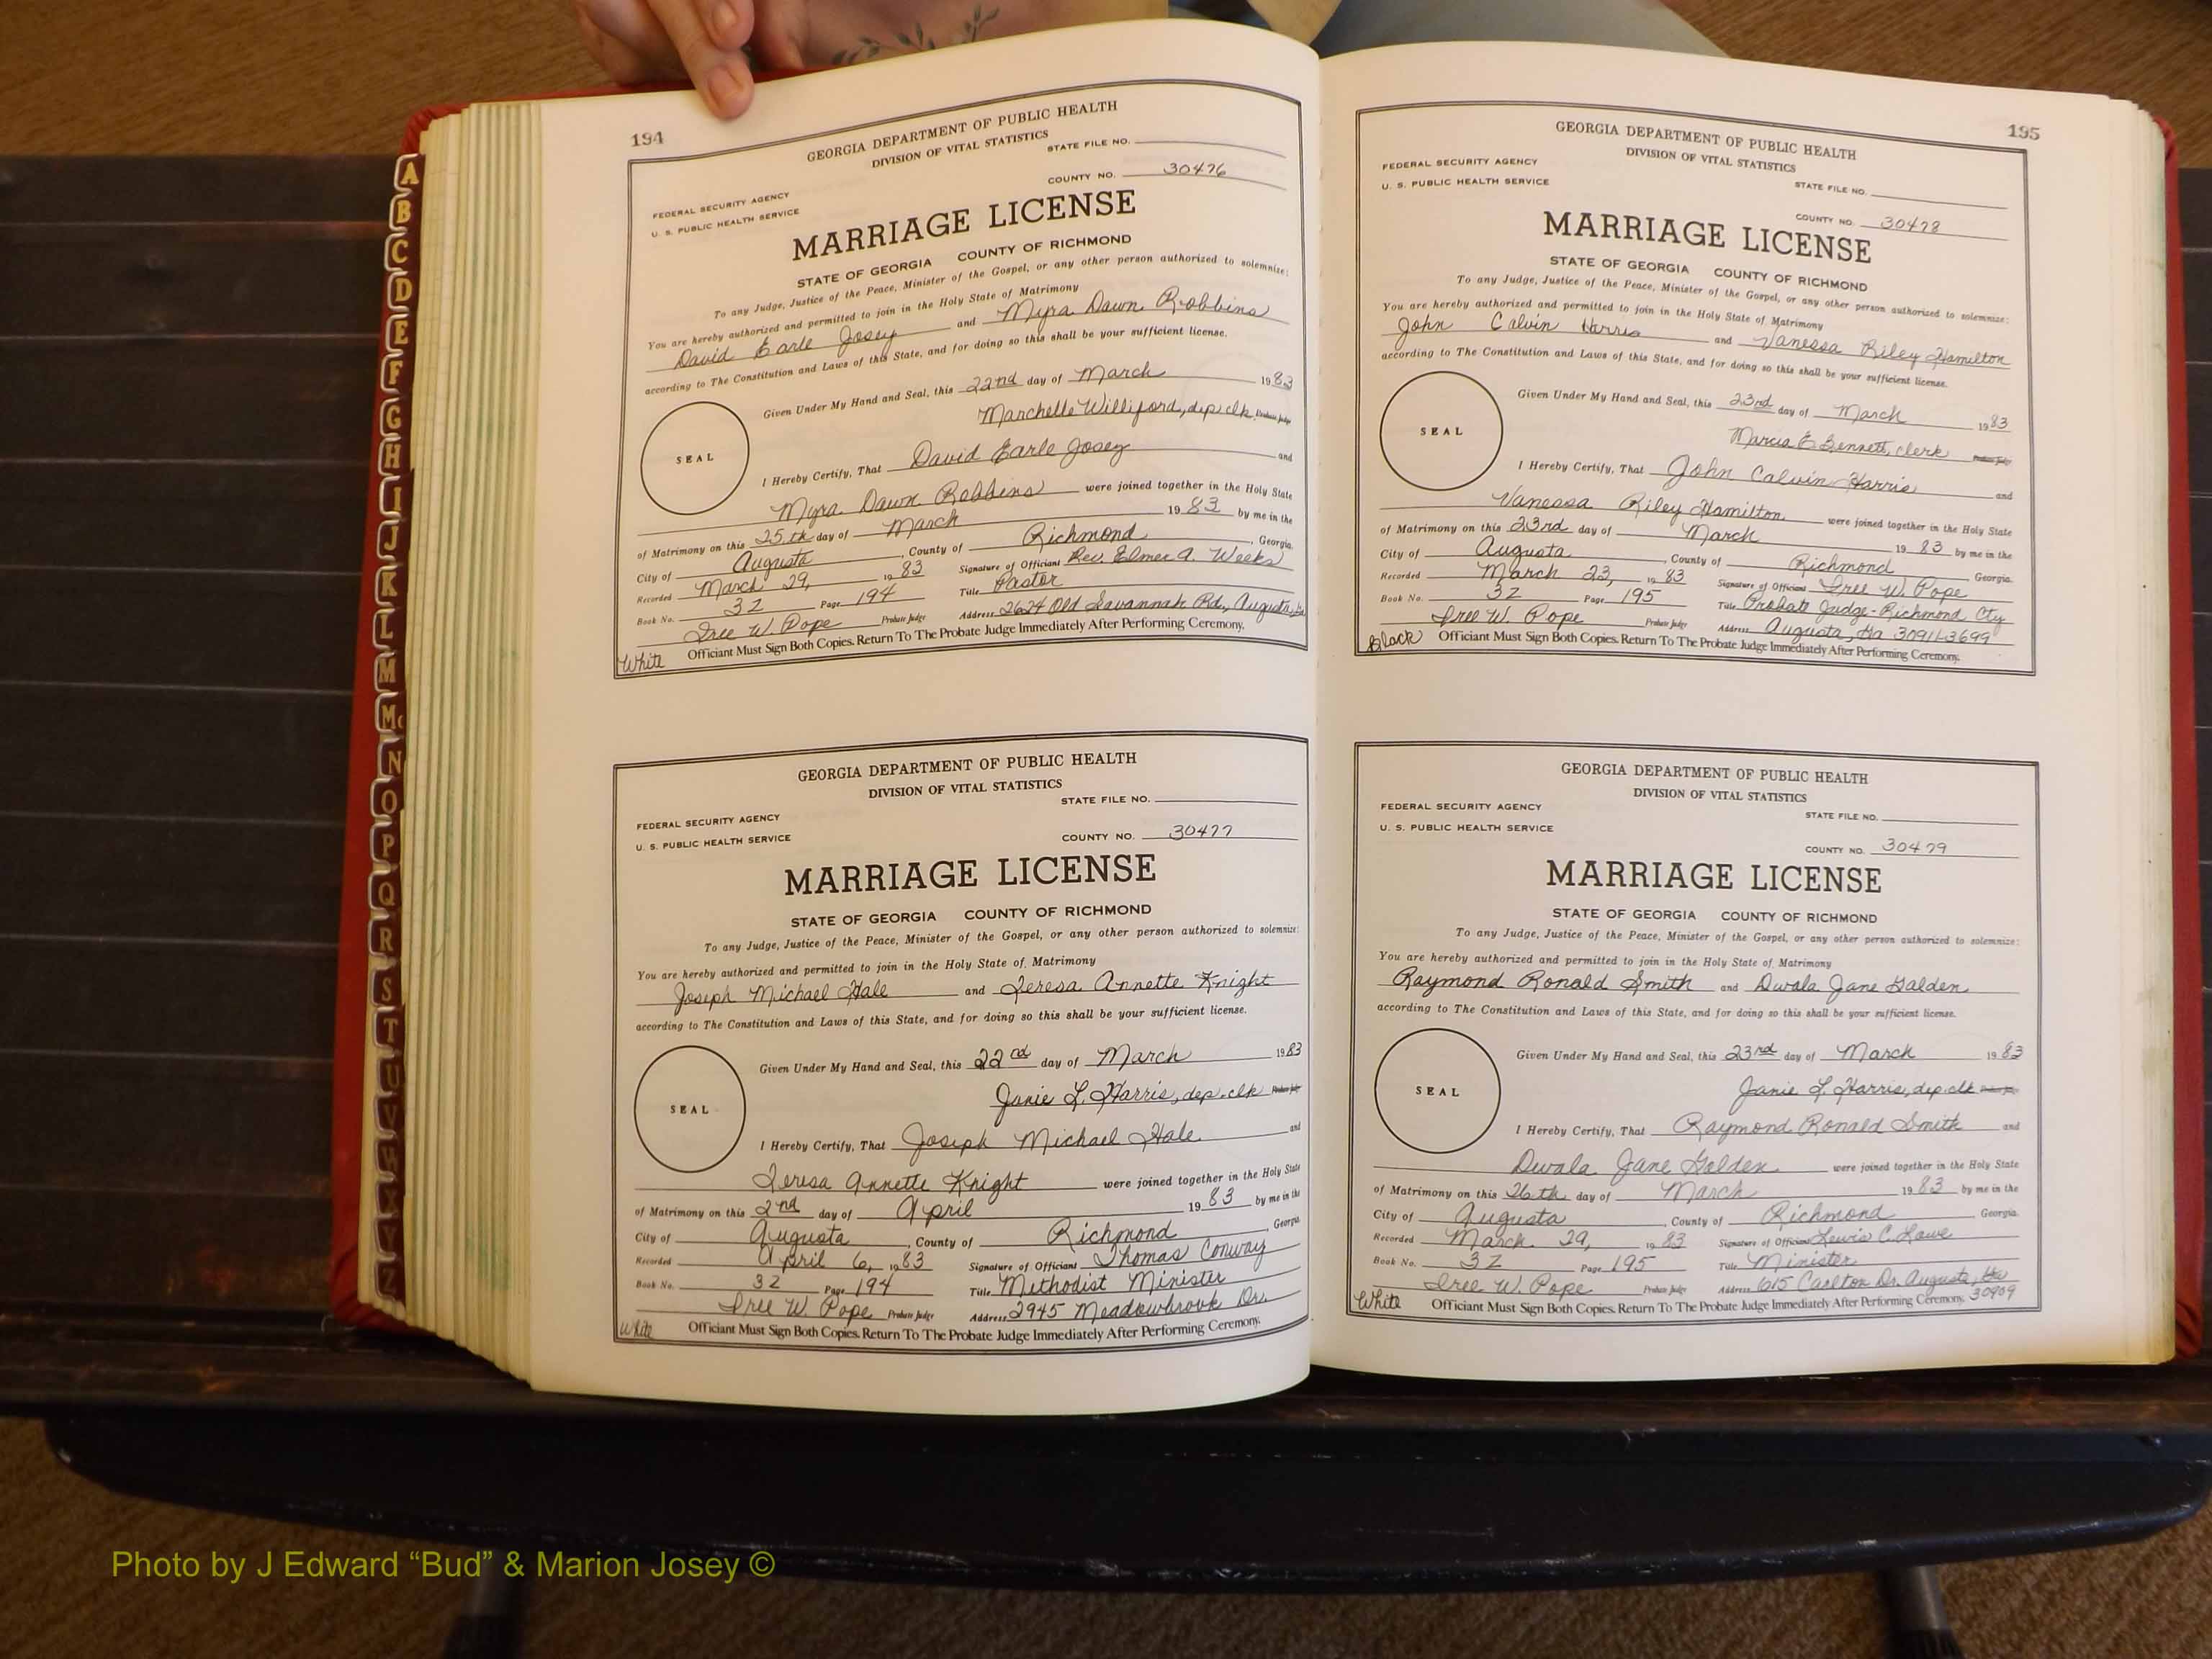 A
B
C
D
E
F
G
H
I
J
K
L
M
Mc
N
O
P
Q
R
S
T
U
V
W
X
Y
Z
194
GEORGIA DEPARTMENT OF PUBLIC HEALTH
DIVISION OF VITAL STATISTICS
STATE FILE NO.
COUNTY NO. 30476
FEDERAL SECURITY AGENCY
U. S. PUBLIC HEALTH SERVICE
MARRIAGE LICENSE
STATE OF GEORGIA COUNTY OF RICHMOND
To any Judge, Justice of the Peace, Minister of the Gospel, or any other person authorized to solemnize:
You are hereby authorized and permitted to join in the Holy State of Matrimony
David Earle Josey and Myra Dawn Robbins
according to The Constitution and Laws of this State, and for doing so this shall be your sufficient license.
Given Under My Hand and Seal, this 22nd day of March 1983
Marchelle Williford, dep. clk. Probate Judge
SEAL
I Hereby Certify, That David Earle Josey and
Myra Dawn Robbins were joined together in the Holy State
of Matrimony on this 25th day of March 1983 by me in the
City of Augusta, County of Richmond, Georgia.
Recorded March 29, 1983 Signature of Officiant Rev. Elmer A. Weeks
Book No. 32 Page 194 Title Pastor
Iree W. Pope Probate Judge Address 2624 Old Savannah Rd., Augusta, Ga
White Officiant Must Sign Both Copies. Return To The Probate Judge Immediately After Performing Ceremony.
GEORGIA DEPARTMENT OF PUBLIC HEALTH
DIVISION OF VITAL STATISTICS
STATE FILE NO.
FEDERAL SECURITY AGENCY
U. S. PUBLIC HEALTH SERVICE COUNTY NO. 30477
MARRIAGE LICENSE
STATE OF GEORGIA COUNTY OF RICHMOND
To any Judge, Justice of the Peace, Minister of the Gospel, or any other person authorized to solemnize:
You are hereby authorized and permitted to join in the Holy State of Matrimony
Joseph Michael Hale and Teresa Annette Knight
according to The Constitution and Laws of this State, and for doing so this shall be your sufficient license.
Given Under My Hand and Seal, this 22nd day of March 1983
Janie L. Harris, dep. clk Probate Judge
SEAL
I Hereby Certify, That Joseph Michael Hale and
Teresa Annette Knight were joined together in the Holy State
of Matrimony on this 2nd day of April 1983 by me in the
City of Augusta, County of Richmond, Georgia.
Recorded April 6, 1983 Signature of Officiant Thomas Conway
Book No. 32 Page 194 Title Methodist Minister
Iree W. Pope Probate Judge Address 2945 Meadowbrook Dr.
White Officiant Must Sign Both Copies. Return To The Probate Judge Immediately After Performing Ceremony.
195
GEORGIA DEPARTMENT OF PUBLIC HEALTH
DIVISION OF VITAL STATISTICS
FEDERAL SECURITY AGENCY
U. S. PUBLIC HEALTH SERVICE
STATE FILE NO.
COUNTY NO. 30478
MARRIAGE LICENSE
STATE OF GEORGIA COUNTY OF RICHMOND
To any Judge, Justice of the Peace, Minister of the Gospel, or any other person authorized to solemnize:
You are hereby authorized and permitted to join in the Holy State of Matrimony
John Calvin Harris and Vanessa Riley Hamilton
according to The Constitution and Laws of this State, and for doing so this shall be your sufficient license.
Given Under My Hand and Seal, this 23rd day of March 1983
Marcia E. Bennett, clerk Probate Judge
SEAL
I Hereby Certify, That John Calvin Harris and
Vanessa Riley Hamilton were joined together in the Holy State
of Matrimony on this 23rd day of March 1983 by me in the
City of Augusta, County of Richmond Georgia.
Recorded March 23, 1983 Signature of Officiant Iree W. Pope
Book No. 32 Page 195 Title Probate Judge-Richmond Cty
Iree W. Pope Probate Judge Address Augusta, Ga 30911-3699
Black Officiant Must Sign Both Copies. Return To The Probate Judge Immediately After Performing Ceremony.
GEORGIA DEPARTMENT OF PUBLIC HEALTH
DIVISION OF VITAL STATISTICS
FEDERAL SECURITY AGENCY
STATE FILE NO.
U. S. PUBLIC HEALTH SERVICE
COUNTY NO. 30479
MARRIAGE LICENSE
STATE OF GEORGIA COUNTY OF RICHMOND
To any Judge, Justice of the Peace, Minister of the Gospel, or any other person authorized to solemnize:
You are hereby authorized and permitted to join in the Holy State of Matrimony
Raymond Ronald Smith and Dwala Jane Golden
according to The Constitution and Laws of this State, and for doing so this shall be your sufficient license.
Given Under My Hand and Seal, this 23rd day of March 1983
Janie L. Harris, dep. clk Probate Judge
SEAL
I Hereby Certify, That Raymond Ronald Smith and
Dwala Jane Golden were joined together in the Holy State
of Matrimony on this 26th day of March 1983 by me in the
City of Augusta, County of Richmond Georgia.
Recorded March 29, 1983 Signature of Officiant Lewis C. Lowe
Book No. 32 Page 195 Title Minister
Iree W. Pope Probate Judge Address 615 Carlton Dr. Augusta, Ga
30909
White Officiant Must Sign Both Copies. Return To The Probate Judge Immediately After Performing Ceremony.
Photo by J Edward “Bud” & Marion Josey ©